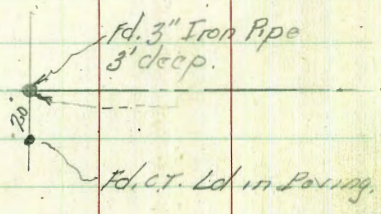 Fd. 3" Iron Pipe
3' deep.
20'
Fd. C.T. Ld in Paving.